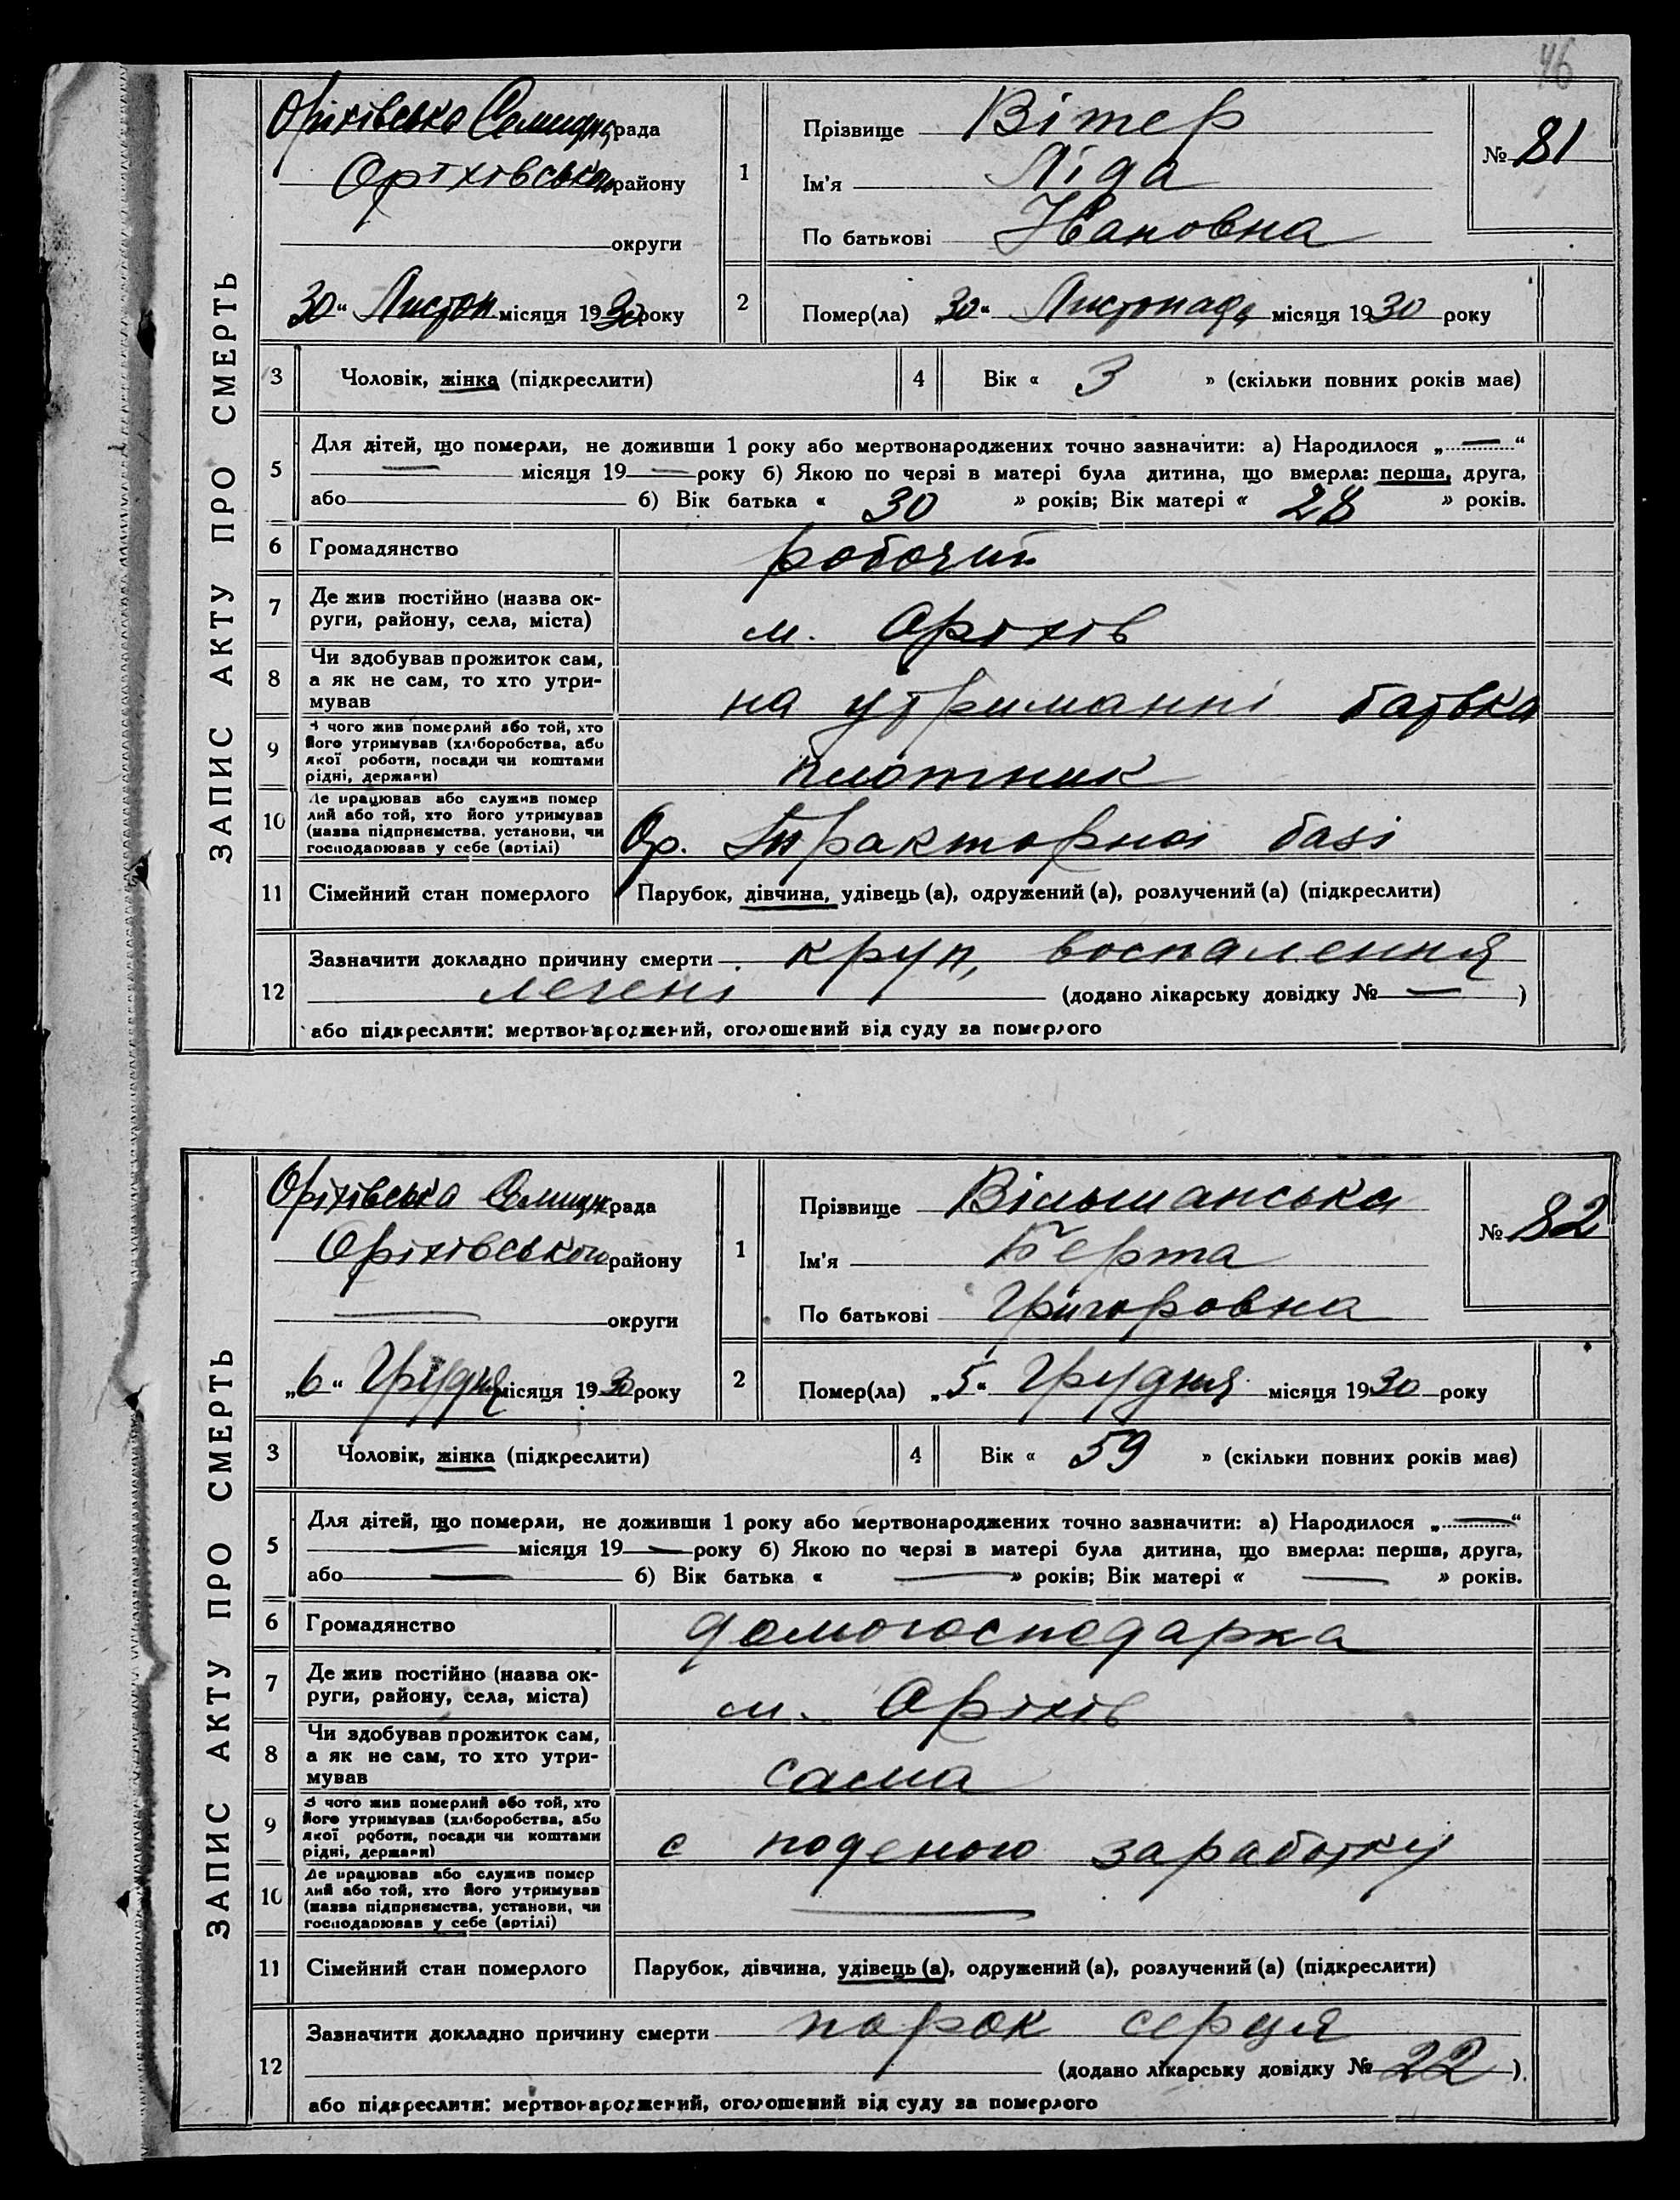 46
ЗАПИС АКТУ ПРО СМЕРТЬ
Оріхівська Селищна рада
Оріхівського району
округи
„30“ Листоп місяця 1930 року
1
Прізвище Вітер
Ім’я Ліда
По батькові Івановна
№ 81
2
Помер(ла) „30“ Листопада місяця 1930 року
3
Чоловік, жінка (підкреслити)
4
Вік « 3 » (скільки повних років має)
5
Для дітей, що померли, не доживши 1 року або мертвонароджених точно зазначити: а) Народилося „—“
— місяця 19— року б) Якою по черзі в матері була дитина, що вмерла: перша, друга,
або 6) Вік батька « 30 » років; Вік матері « 28 » років.
6
Громадянство
робочий
7
Де жив постійно (назва ок-
руги, району, села, міста)
м. Оріхів
8
Чи здобував прожиток сам,
а як не сам, то хто утри-
мував
на утриманні батька
9
З чого жив померлий або той, хто
його утримував (хліборобства, або
якої роботи, посади чи коштами
рідні, держави)
плотник
10
Де працював або служив помер
лий або той, хто його утримував
(назва підприємства, установи, чи
господарював у себе (артілі)
Ор. Тракторної базі
11
Сімейний стан померлого
Парубок, дівчина, удівець (а), одружений (а), розлучений (а) (підкреслити)
12
Зазначити докладно причину смерти круп, воспалення
легені (додано лікарську довідку № — )
або підкреслити: мертвонароджений, оголошений від суду за померлого
ЗАПИС АКТУ ПРО СМЕРТЬ
Оріхівська Селищн рада
Оріхівського району
— округи
„6“ Грудня місяця 1930 року
1
Прізвище Вільшанська
Ім’я Берта
По батькові Григоровна
№ 82
2
Помер(ла) „5“ Грудня місяця 1930 року
3
Чоловік, жінка (підкреслити)
4
Вік « 59 » (скільки повних років має)
5
Для дітей, що померли, не доживши 1 року або мертвонароджених точно зазначити: а) Народилося „—“
— місяця 19— року б) Якою по черзі в матері була дитина, що вмерла: перша, друга,
або — 6) Вік батька « — » років; Вік матері « — » років.
6
Громадянство
домогосподарка
7
Де жив постійно (назва ок-
руги, району, села, міста)
м. Оріхів
8
Чи здобував прожиток сам,
а як не сам, то хто утри-
мував
сама
9
З чого жив померлий або той, хто
його утримував (хліборобства, або
якої роботи, посади чи коштами
рідні, держави)
с поденого заработку
10
Де працював або служив помер
лий або той, хто його утримував
(назва підприємства, установи, чи
господарював у себе (артілі)
—
11
Сімейний стан померлого
Парубок, дівчина, удівець (а), одружений (а), розлучений (а) (підкреслити)
12
Зазначити докладно причину смерти порок серця
(додано лікарську довідку № 22 ).
або підкреслити: мертвонароджений, оголошений від суду за померлого